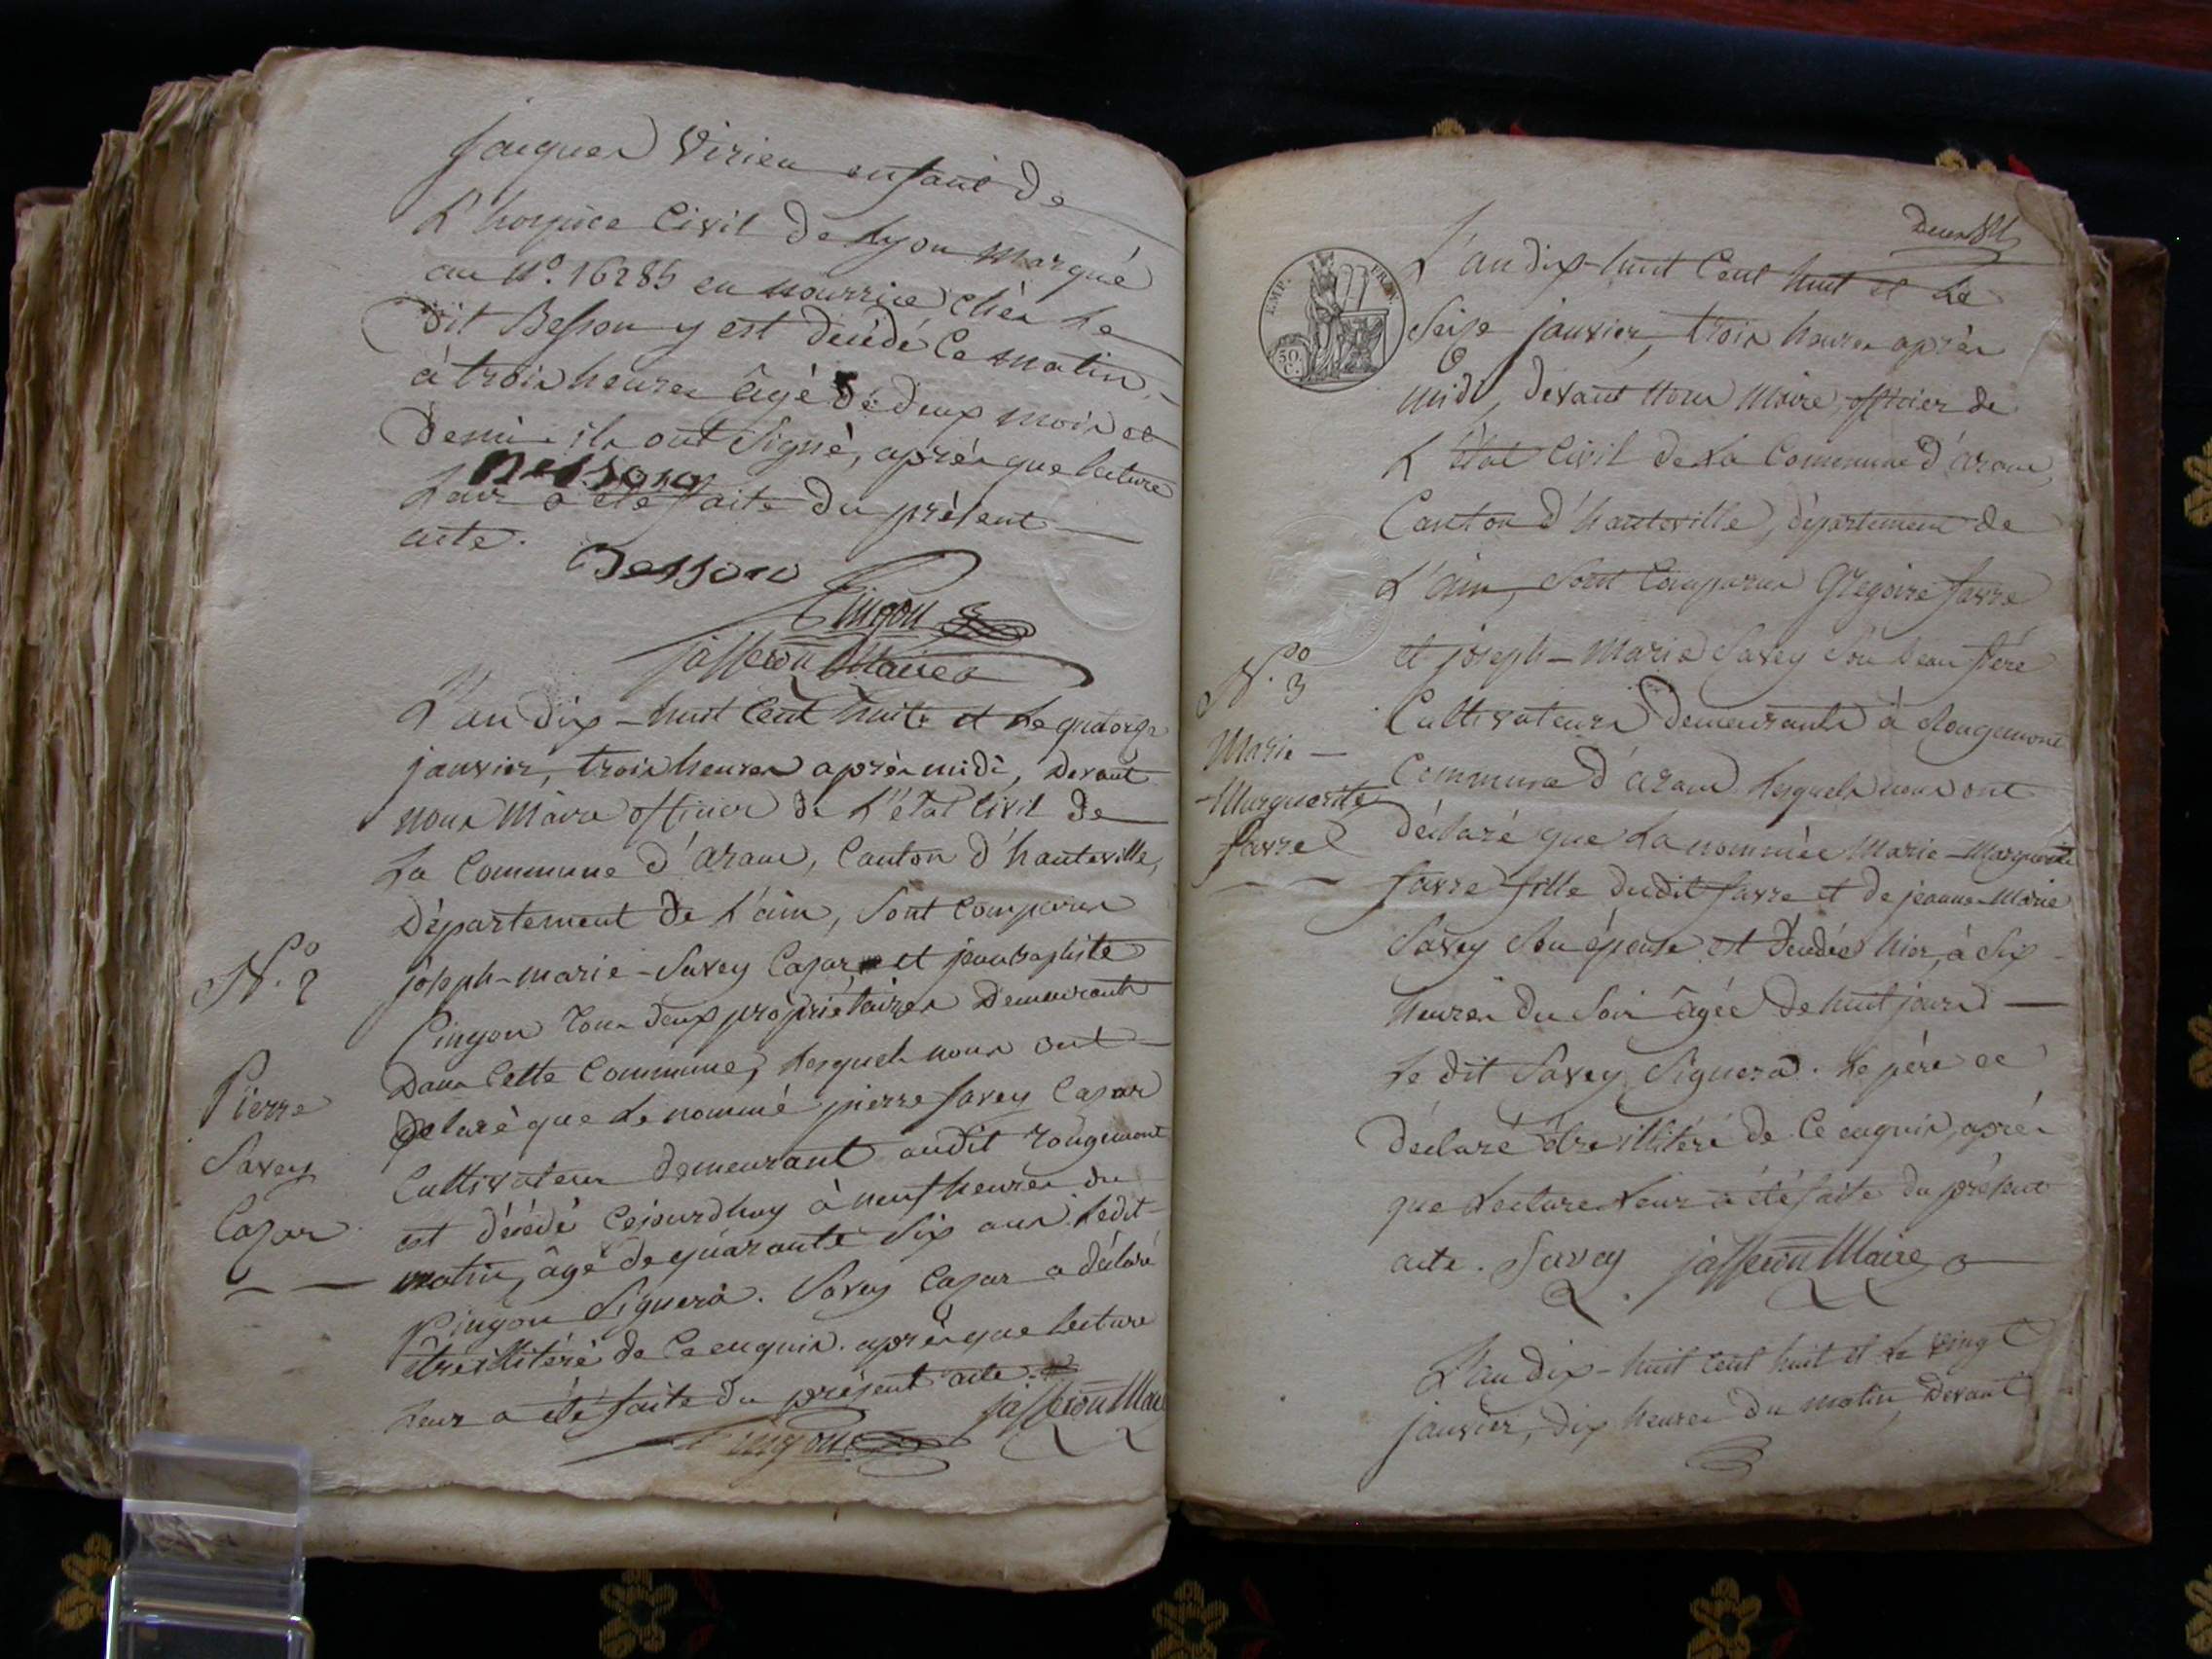 jacques Virieu enfant de
L'hospice Civil de Lyon marqué
au N.º 16285 en nourrice chéz Le
dit Besson y est décédé Ce matin
à trois heures âgé de deux mois et
demi. ils ont Signé, après que lecture
Besson
Leur a été faite du présent
acte.
Besson
Pingon
jasseron Maire
L'an dix-huit Cent huit et Le quatorze
janvier, trois heures après midi, devant
nous Maire officier de L'état Civil de
La Commune d'aranc, Canton d'hauteville,
département de L'ain, Sont Comparus
N.º 2
joseph-marie-Savey Casar et jean baptiste
Pingon tous deux propriétaires Demeurants
Dans Cette Commune, Lesquels nous ont
déclaré que Le nommé pierre Savey Casar
Pierre
Savey
Casar
Cultivateur demeurant audit rougemont
est décédé Cejourdhuy à neuf heures du
matin, âgé de quarante Six ans. Ledit
Pingon Signera. Savey Casar a déclaré
être illitéré de Ce enquis. après que lecture
Leur a été faite du présent acte.
Pingon jasseron Maire
L'an dix-huit Cent huit et Le
EMP. FRAN.
50 C.
Seize janvier, trois heures après
midi, devant Nous Maire, officier de
L'état Civil de La Commune d'aranc,
Canton d'hauteville, département de
L'ain, Sont Comparus Grégoire favre
et joseph-Marie Savey Son beau frére
N.º 3
Cultivateurs Demeurants à Rougemont
Marie-
Marguerite
favre
Commune d'aranc Lesquels nous ont
déclaré que La nommée Marie-Marguerite
favre fille dudit favre et de jeanne Marie
Savey Son épouse est décédée hier, à Six
heures du Soir âgée de huit jours
Le dit Savey Signera. Le pére a
déclaré être illitéré de Ce enquis, après
que Lecture Leur a été faite du présent
acte. Savey jasseron Maire
L'an dix-huit cent huit et Le vingt
janvier, dix heures du matin, devant